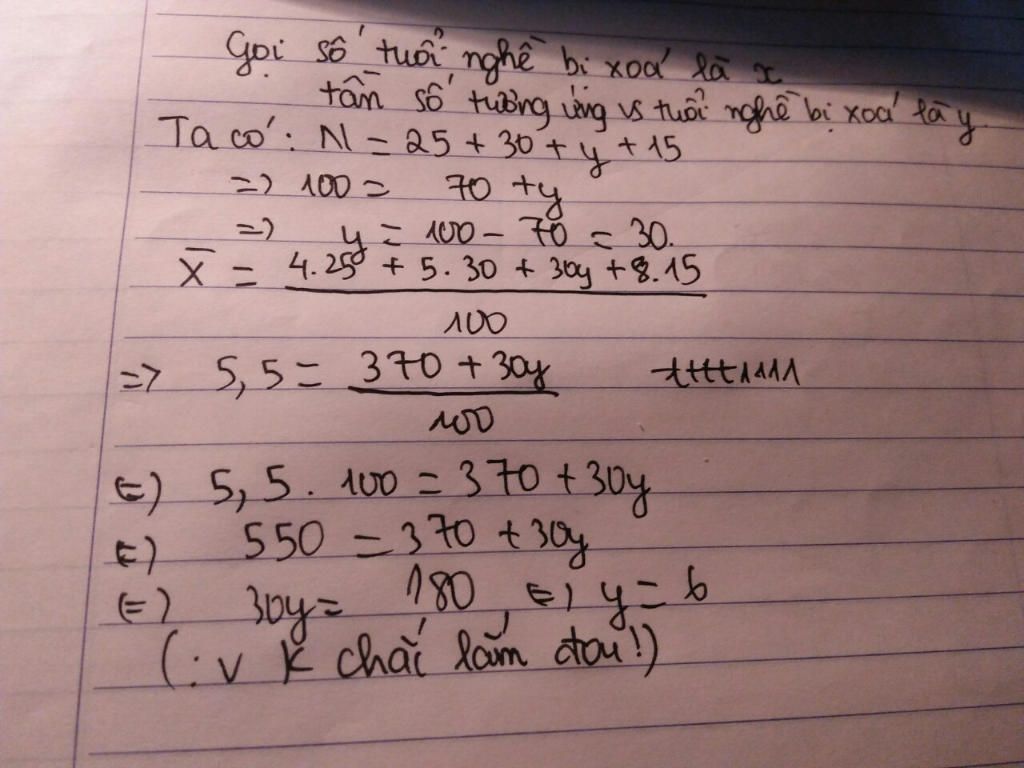 Gọi số tuổi nghề bị xoá là x
tần số tương ứng vs tuổi nghề bị xoá là y
Ta có: N = 25 + 30 + y + 15
=> 100 = 70 + y
=> y = 100 - 70 = 30.
X̄ = (4.25 + 5.30 + 30y + 8.15) / 100
=> 5,5 = (370 + 30y) / 100
<=> 5,5. 100 = 370 + 30y
<=> 550 = 370 + 30y
<=> 30y = 180 <=> y = 6
(:v K chắc lắm đou!)